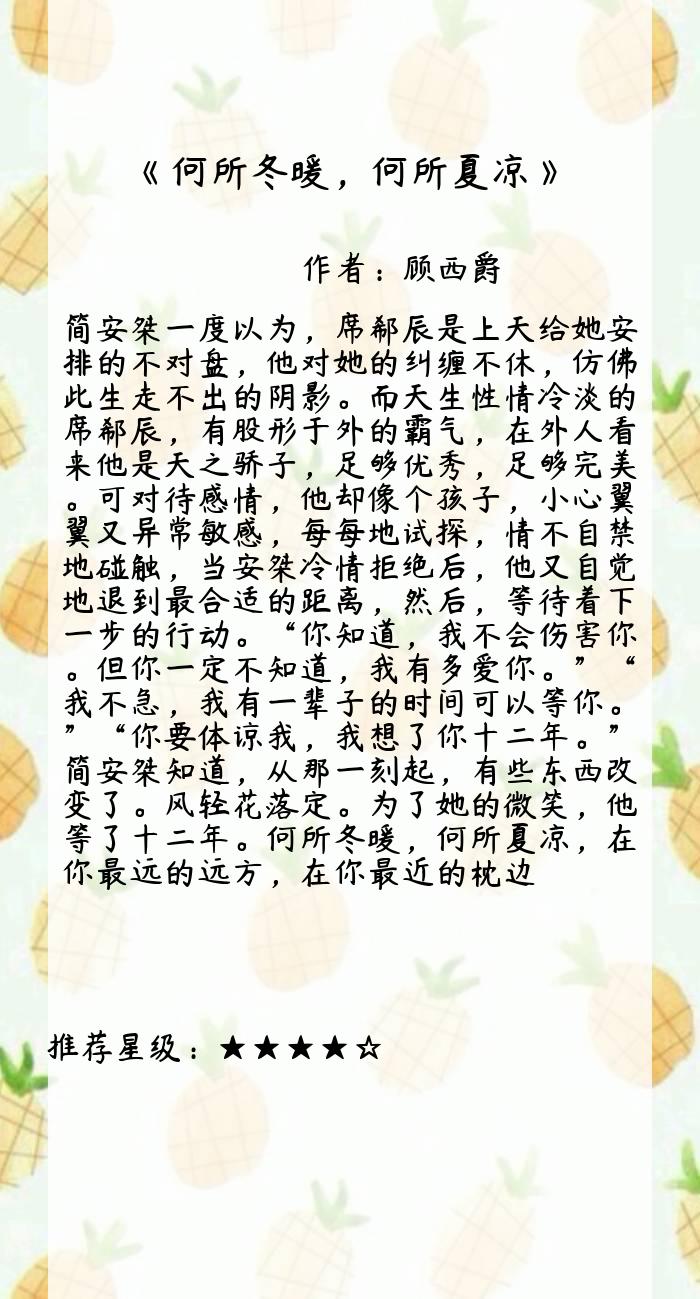 《何所冬暖，何所夏凉》
作者：顾西爵
简安桀一度以为，席郗辰是上天给她安
排的不对盘，他对她的纠缠不休，仿佛
此生走不出的阴影。而天生性情冷淡的
席郗辰，有股形于外的霸气，在外人看
来他是天之骄子，足够优秀，足够完美
。可对待感情，他却像个孩子，小心翼
翼又异常敏感，每每地试探，情不自禁
地碰触，当安桀冷情拒绝后，他又自觉
地退到最合适的距离，然后，等待着下
一步的行动。“你知道，我不会伤害你
。但你一定不知道，我有多爱你。”“
我不急，我有一辈子的时间可以等你。
”“你要体谅我，我想了你十二年。”
简安桀知道，从那一刻起，有些东西改
变了。风轻花落定。为了她的微笑，他
等了十二年。何所冬暖，何所夏凉，在
你最远的远方，在你最近的枕边
推荐星级：★★★★☆